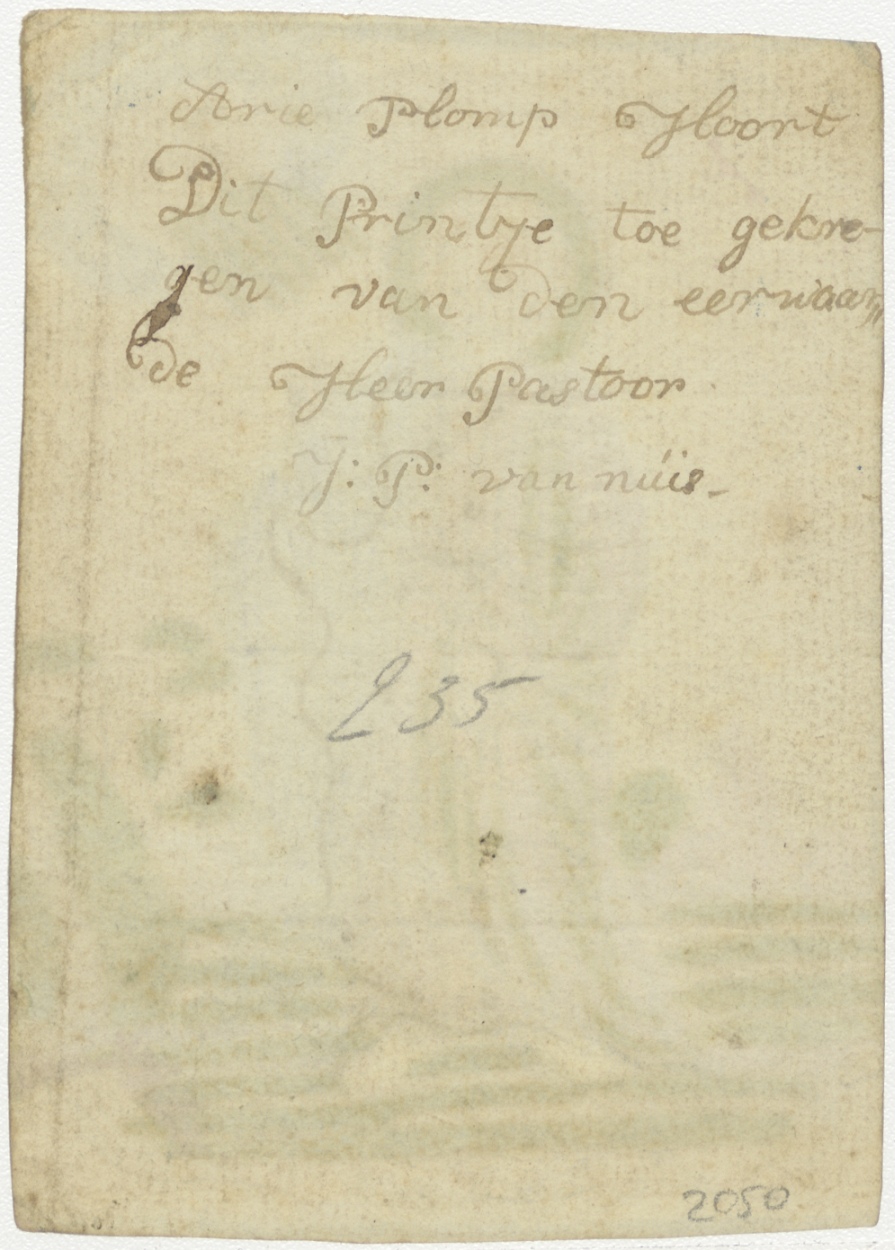 Arie Plomp Hoort
Dit Printje toe gekre-
gen van den eerwaar„
de Heer Pastoor
J: P: van núis-
235
2050